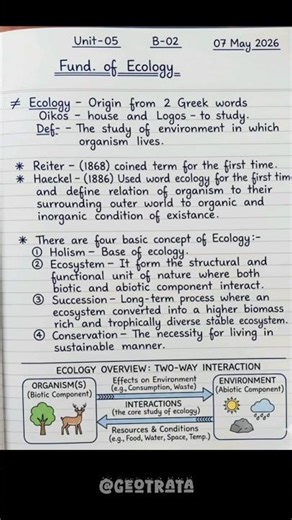 Unit-05 B-02 07 May 2026
Fund. of Ecology
≠ Ecology - Origin from 2 Greek words
Oikos - house and Logos - to study.
Def:- - The study of environment in which
organism lives.
* Reiter - (1868) coined term for the first time.
* Haeckel - (1886) Used word ecology for the first tim
and define relation of organism to their
surrounding outer world to organic and
inorganic condition of existance.
* There are four basic concept of Ecology:-
① Holism - Base of ecology.
② Ecosystem - It form the structural and
functional unit of nature where both
biotic and abiotic component interact.
③ Succession - Long-term process where an
ecosystem converted into a higher biomass
rich and trophically diverse stable ecosystem.
④ Conservation - The necessity for living in
sustainable manner.
ECOLOGY OVERVIEW: TWO-WAY INTERACTION
ORGANISM(S)
(Biotic Component)
Effects on Environment
(e.g., Consumption, Waste)
INTERACTIONS
(the core study of ecology)
Resources & Conditions
(e.g., Food, Water, Space, Temp.)
ENVIRONMENT
(Abiotic Component)
@GEOTRATA